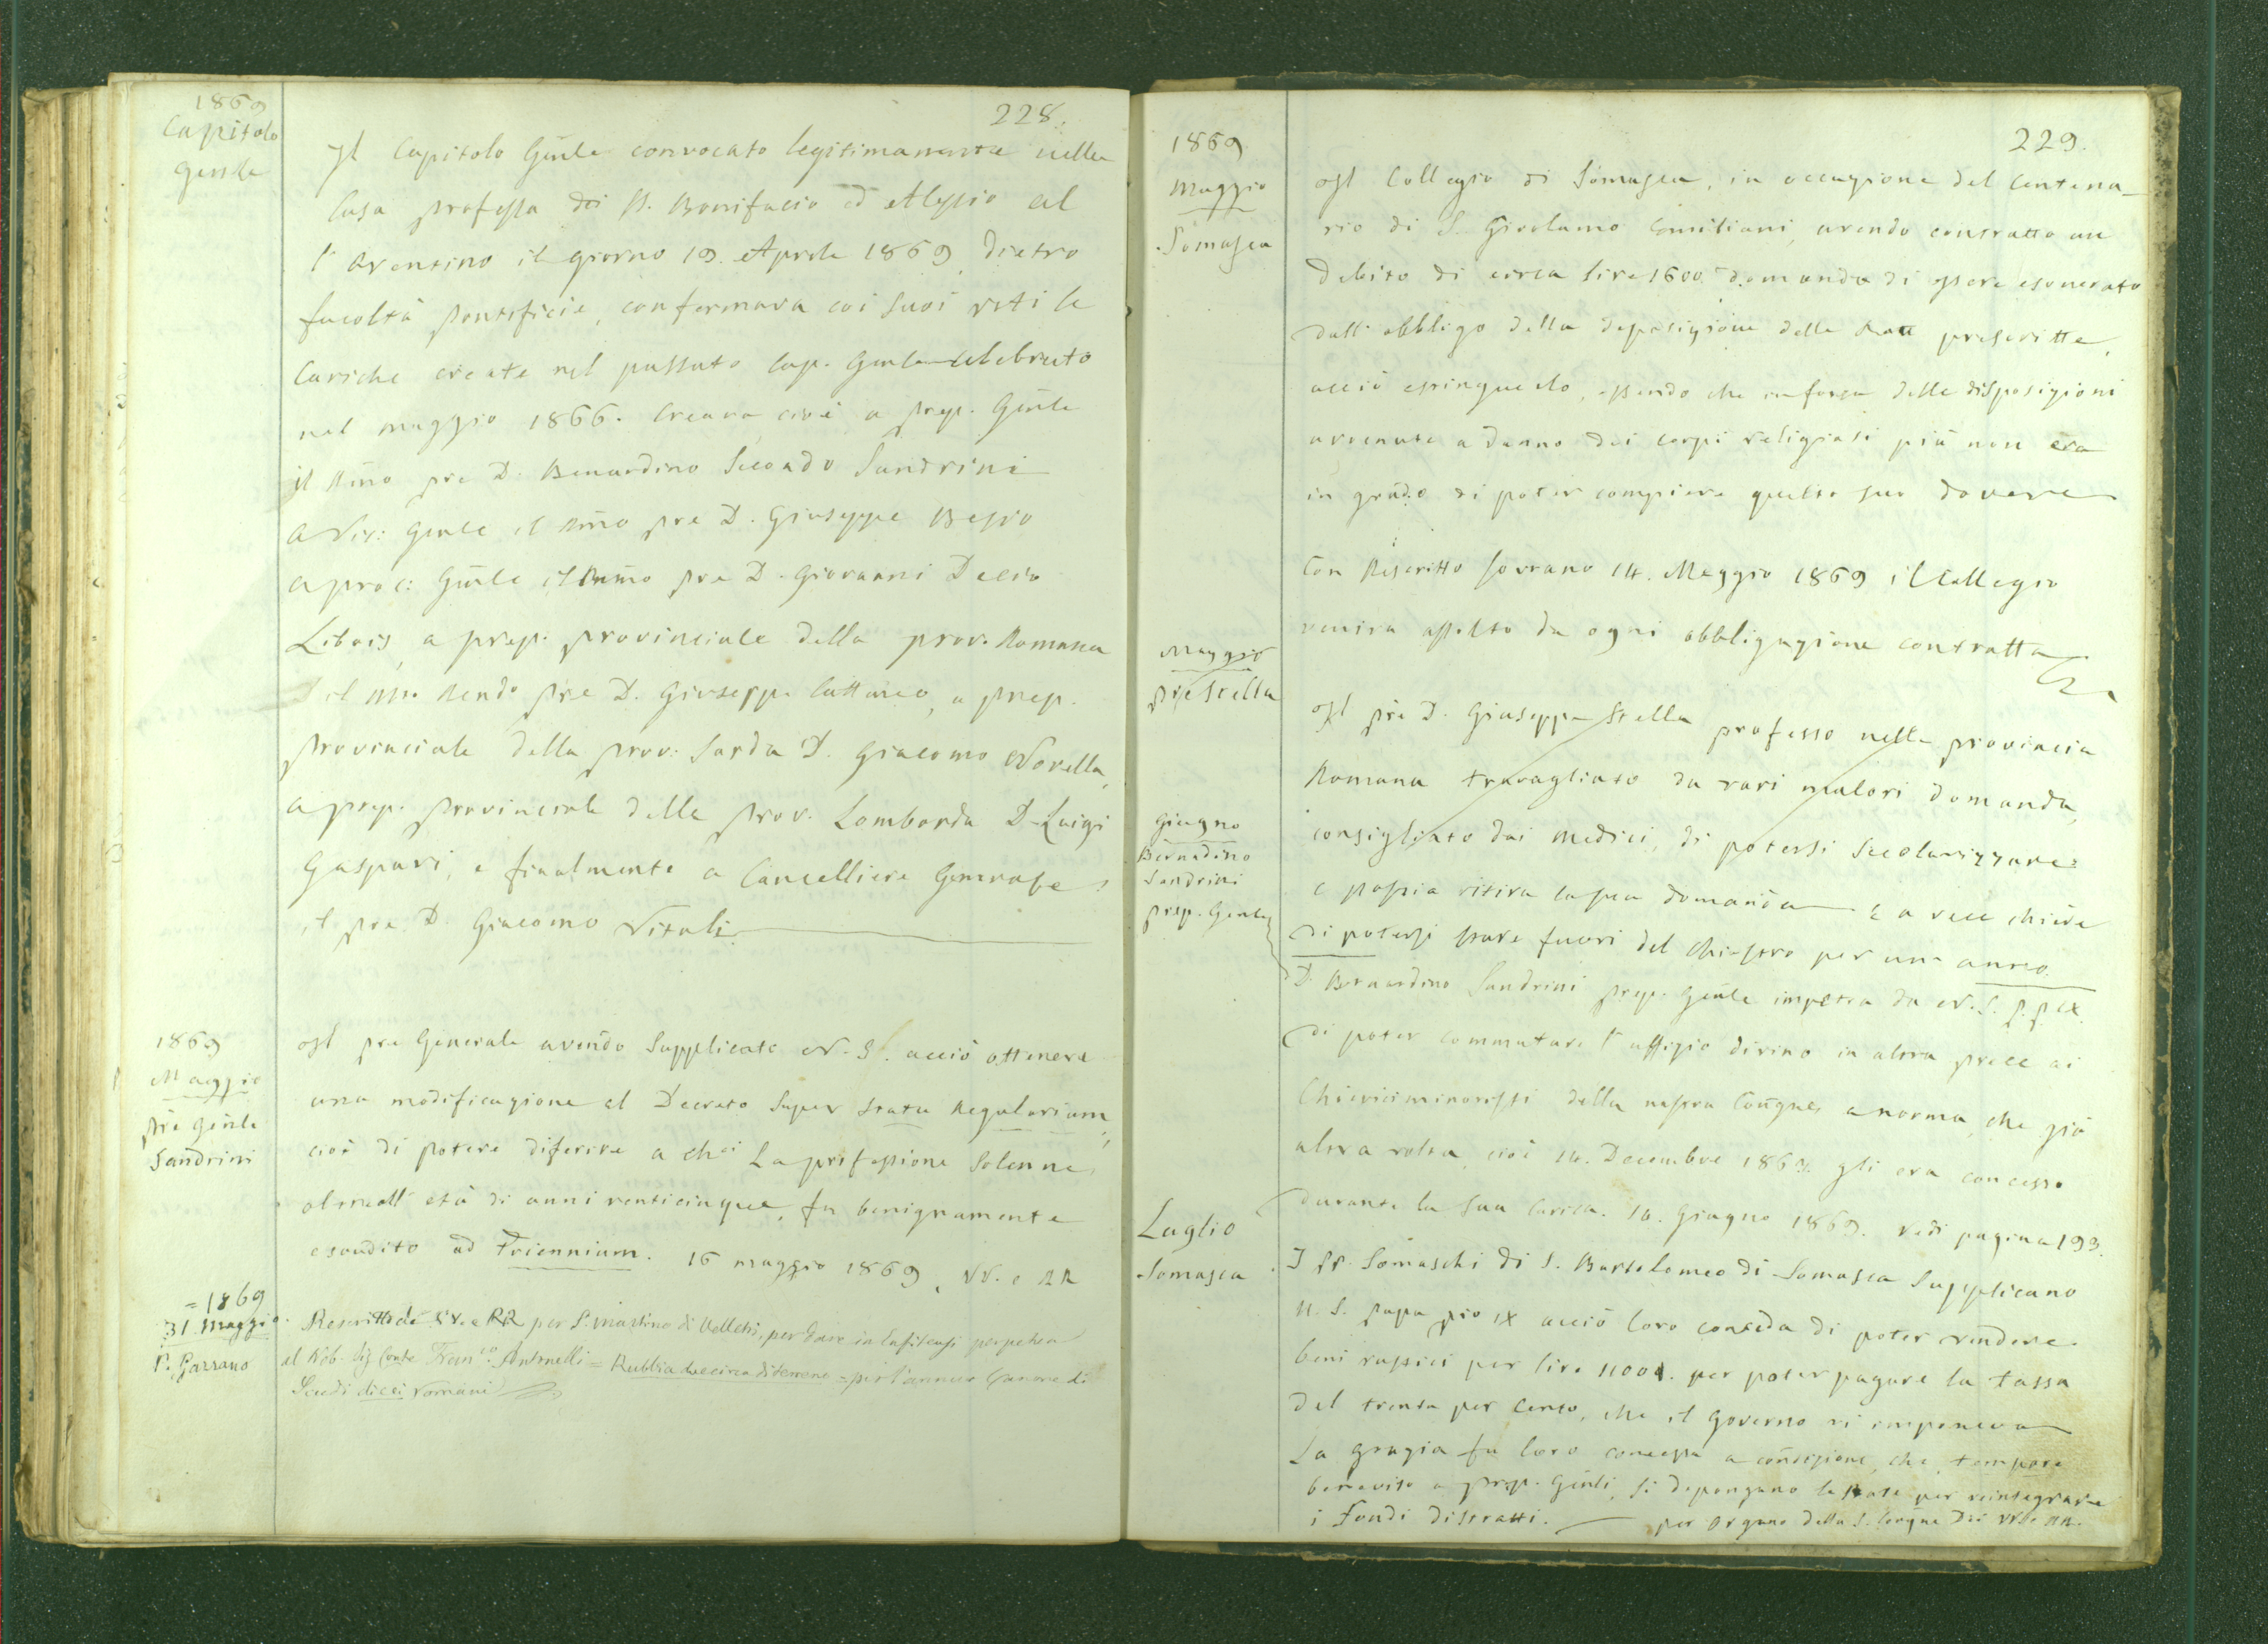 1869
Capitolo
Genle
228.
Il Capitolo Genle convocato legitimamente nella
Casa professa dei SS. Bonifacio ed Alessio al
l'Aventino il giorno 19. Aprile 1869, dietro
facoltà pontificie, confermava coi suoi voti le
Cariche create nel passato Cap. Genle celebrato
nel maggio 1866. Creava cioè a prep. Genle
il Rmo pre D. Bernardino Secondo Sandrini
A Vic: Genle il Rmo pre D. Giuseppe Besio
A proc: Genle il Rmo pre D. Giovanni Decio
Libois, a prep. provinciale della prov. Romana
il M. Rendo pre D. Giuseppe Cattaneo, a prep.
provinciale della prov: Sarda D. Giacomo Novella,
a prep. provinciale della prov. Lombarda D. Luigi
Gaspari, e finalmente a Cancelliere Generale
il pre D. Giacomo Vitali.
1869
Maggio
Pre Genle
Sandrini
Il pre Generale avendo Supplicato N. S. acciò ottenere
una modificazione al Decreto Super Statu Regularium,
cioè di potere diferire a chci La professione Solenne,
oltre all'età di anni venticinque, fu benignamente
esaudito ad Triennium. 16 maggio 1869, VV. e RR
=1869
31. Maggio.
P. Gazzano
Rescritto de VV. e RR per S. Martino di Velletri, per dare in Enfiteusi perpetua
al Nob. Sig Conte Franco. Antonelli = Rubbia due circa di terreno = per l'annuo Canone di
Scudi dieci romani
229.
1869
Maggio
Somasca
Il Collegio di Somasca, in occazione del Centena-
rio di S. Girolamo Emiliani, avendo contratto un
debito di circa lire 1600. domanda di essere esonerato
dall'obbligo della deposizione delle Rate prescritte,
acciò estinguerlo, essendo che in forza delle disposizioni
avvenute a danno dei corpi religiosi più non era
in grado di poter compiere questo suo dovere
Con Rescritto Sovrano 14. Maggio 1869 il Collegio
veniva assolto da ogni obbligazione contratta
Maggio
Pre Stella
Il pre D. Giuseppe Stella professo nella provincia
Romana travagliato da vari malori domanda,
consigliato dai medici, di potersi Secolarizzare:
e poscia ritira la sua domanda e a vece chiede
di potersi stare fuori del Chiostro per un anno.
Giugno
Bernadino
Sandrini
prep. Genle
D. Bernardino Sandrini prep. Genle impetra da N. S. P. P. IX.
di poter commutare l'uffizio divino in altra prece ai
Chierici minoristi della nostra Congne, a norma, che già
altra volta, cioè 14. Decembre 1863. gli era concesso
durante la sua Carica. 14. Giugno 1869. Vedi pagina 193.
Luglio
Somasca
I PP. Somaschi di S. Bartolomeo di Somasca Supplicano
N. S. papa pio IX acciò loro conceda di poter vendere
beni rustici per lire 11000. per poter pagare la tassa
del trenta per Cento, che il Governo vi imponeva
La grazia fu loro concessa a condizione, che, tempore
beneviso a prep. Genli, si depongano le Rate per reintegrare
i Fondi distratti. per Organo della S. Congne dei VV. e RR.